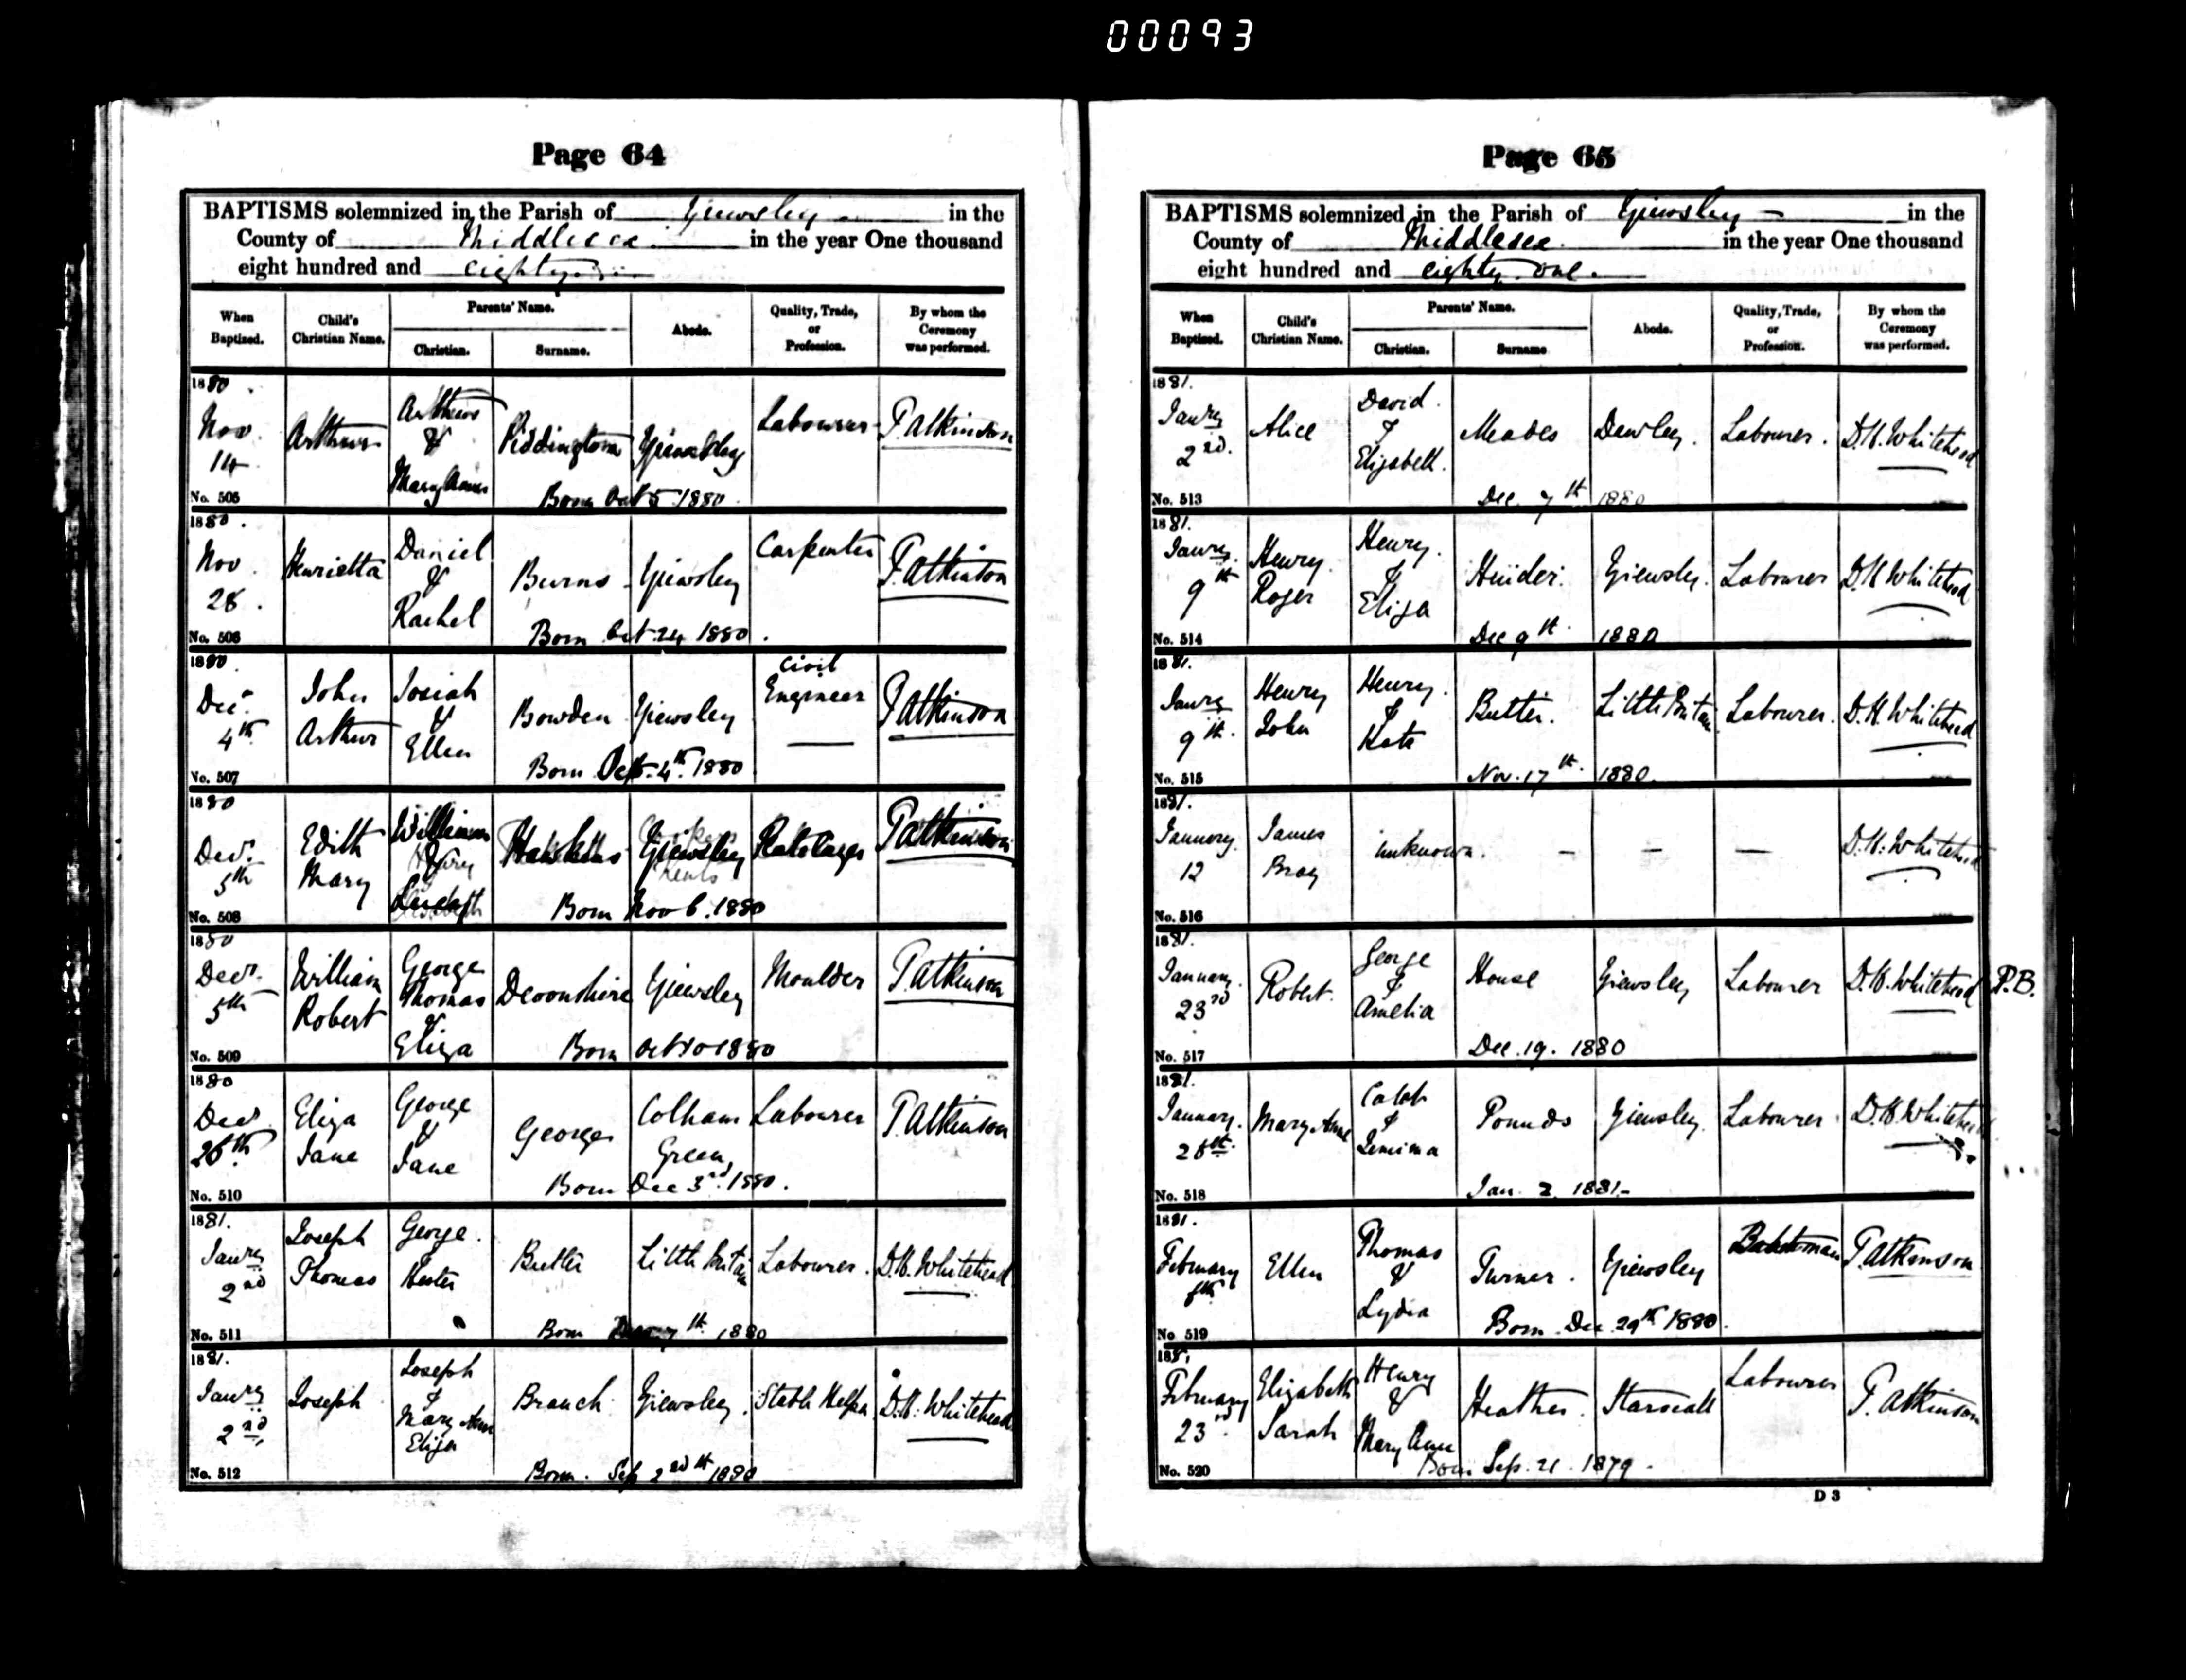 00093
Page 64
BAPTISMS solemnized in the Parish of Yiewsley in the
County of Middlesex in the year One thousand
eight hundred and eighty
When Baptized. Child's Christian Name. Parents' Name. Christian. Surname. Abode. Quality, Trade, or Profession. By whom the Ceremony was performed.
1880 Nov 14 Arthur Arthur & Mary Ann Piddington Yiewsley Labourer T. Atkinson
No. 505 Born Oct 5 1880
1880 Nov 28 Henrietta Daniel & Rachel Burns Yiewsley Carpenter T. Atkinson
No. 506 Born Oct 24 1880
1880 Decr 4th John Arthur Josiah & Ellen Bowden Yiewsley Civil Engineer T. Atkinson
No. 507 Born 4th 1880
1880 Decr 5th Edith Mary William Hawkins Yiewsley T. Atkinson
No. 508 Born Nov 6. 1880
1880 Decr 5th William Robert George Thomas & Eliza Devonshire Yiewsley Moulder T. Atkinson
No. 509 Born Oct 10 1880
1880 Decr 26th Eliza Jane George & Jane George Colham Green Labourer T. Atkinson
No. 510 Born Dec 3rd 1880.
1881. Janry 2nd Joseph Thomas George Hester Butler Little Britain Labourer. D.H. Whitehead
No. 511 Born 7th 1880
1881. Janry 2nd Joseph Joseph & Mary Ann Eliza Branch Yiewsley. Stable Helper D.H. Whitehead
No. 512 Born. Sep 1880
Page 65
BAPTISMS solemnized in the Parish of Yiewsley in the
County of Middlesex. in the year One thousand
eight hundred and eighty one.
When Baptized. Child's Christian Name. Parents' Name. Christian. Surname Abode. Quality, Trade, or Profession. By whom the Ceremony was performed.
1881. Janry 2nd. Alice David & Elizabeth. Meades Dawley. Labourer. D.H. Whitehead
No. 513 Dec. 7th 1880
1881. Janry. 9th Henry Roger Henry. & Eliza Yiewsley. Labourer D.H. Whitehead
No. 514 Dec 9th. 1880
1881. Janry 9th. Henry John Henry. & Kate Butler. Little Britain Labourer. D.H. Whitehead
No. 515 Nov. 17th. 1880.
1881. January. 12 James Bray unknown. — — — D.H. Whitehead
No. 516
1881. January. 23rd Robert. George & Amelia House Yiewsley Labourer D.H. Whitehead P.B.
No. 517 Dec. 19. 1880
1881. January. Mary Anne Caleb & Jemima Pounds Yiewsley. Labourer D.H. Whitehead
No. 518 Jan. 2. 1881
1881. February Ellen Thomas & Lydia Turner. Yiewsley T. Atkinson
No 519 Born. Dec 29th 1880.
1881 February 23rd Elizabeth Sarah Henry & Mary Ann Heather. Labourer T. Atkinson
No. 520 Born Sep. 21. 1879.
D 3